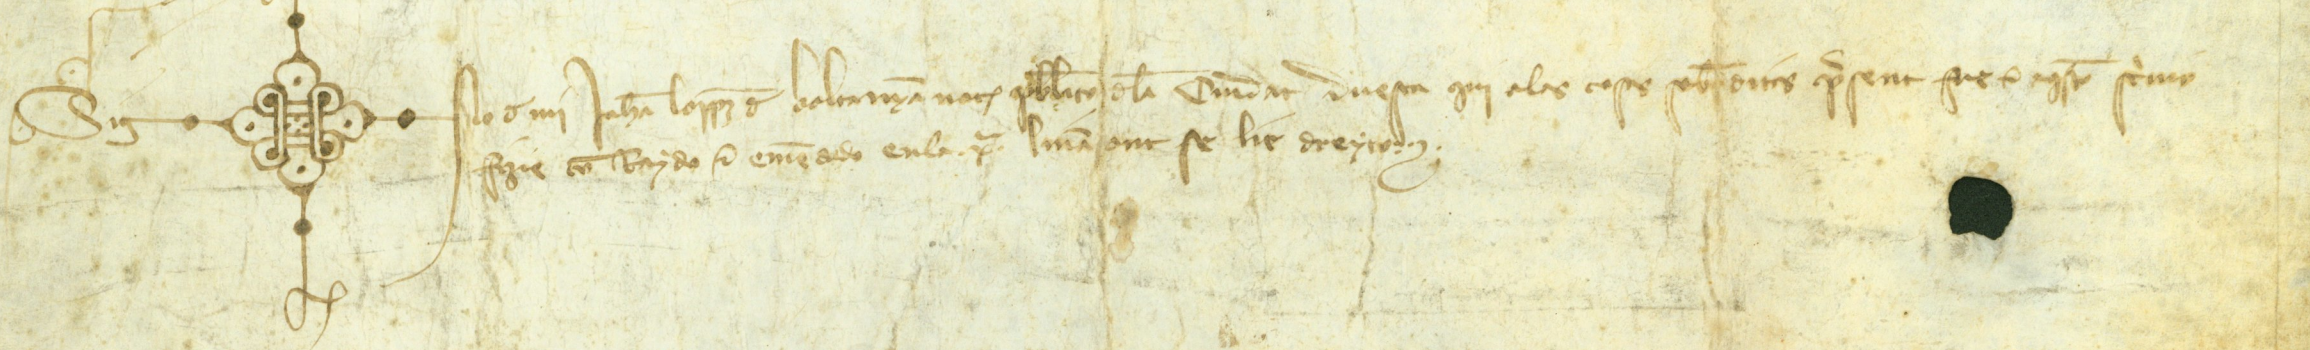 Sig no d mi Joha lopp d boltanya not publico dla Ciudat duesca qui alas cosas sobrditas present fue et aquesto scriuo
fizie co Raydo et emendado en la .x. linea ont se lie dreyto.